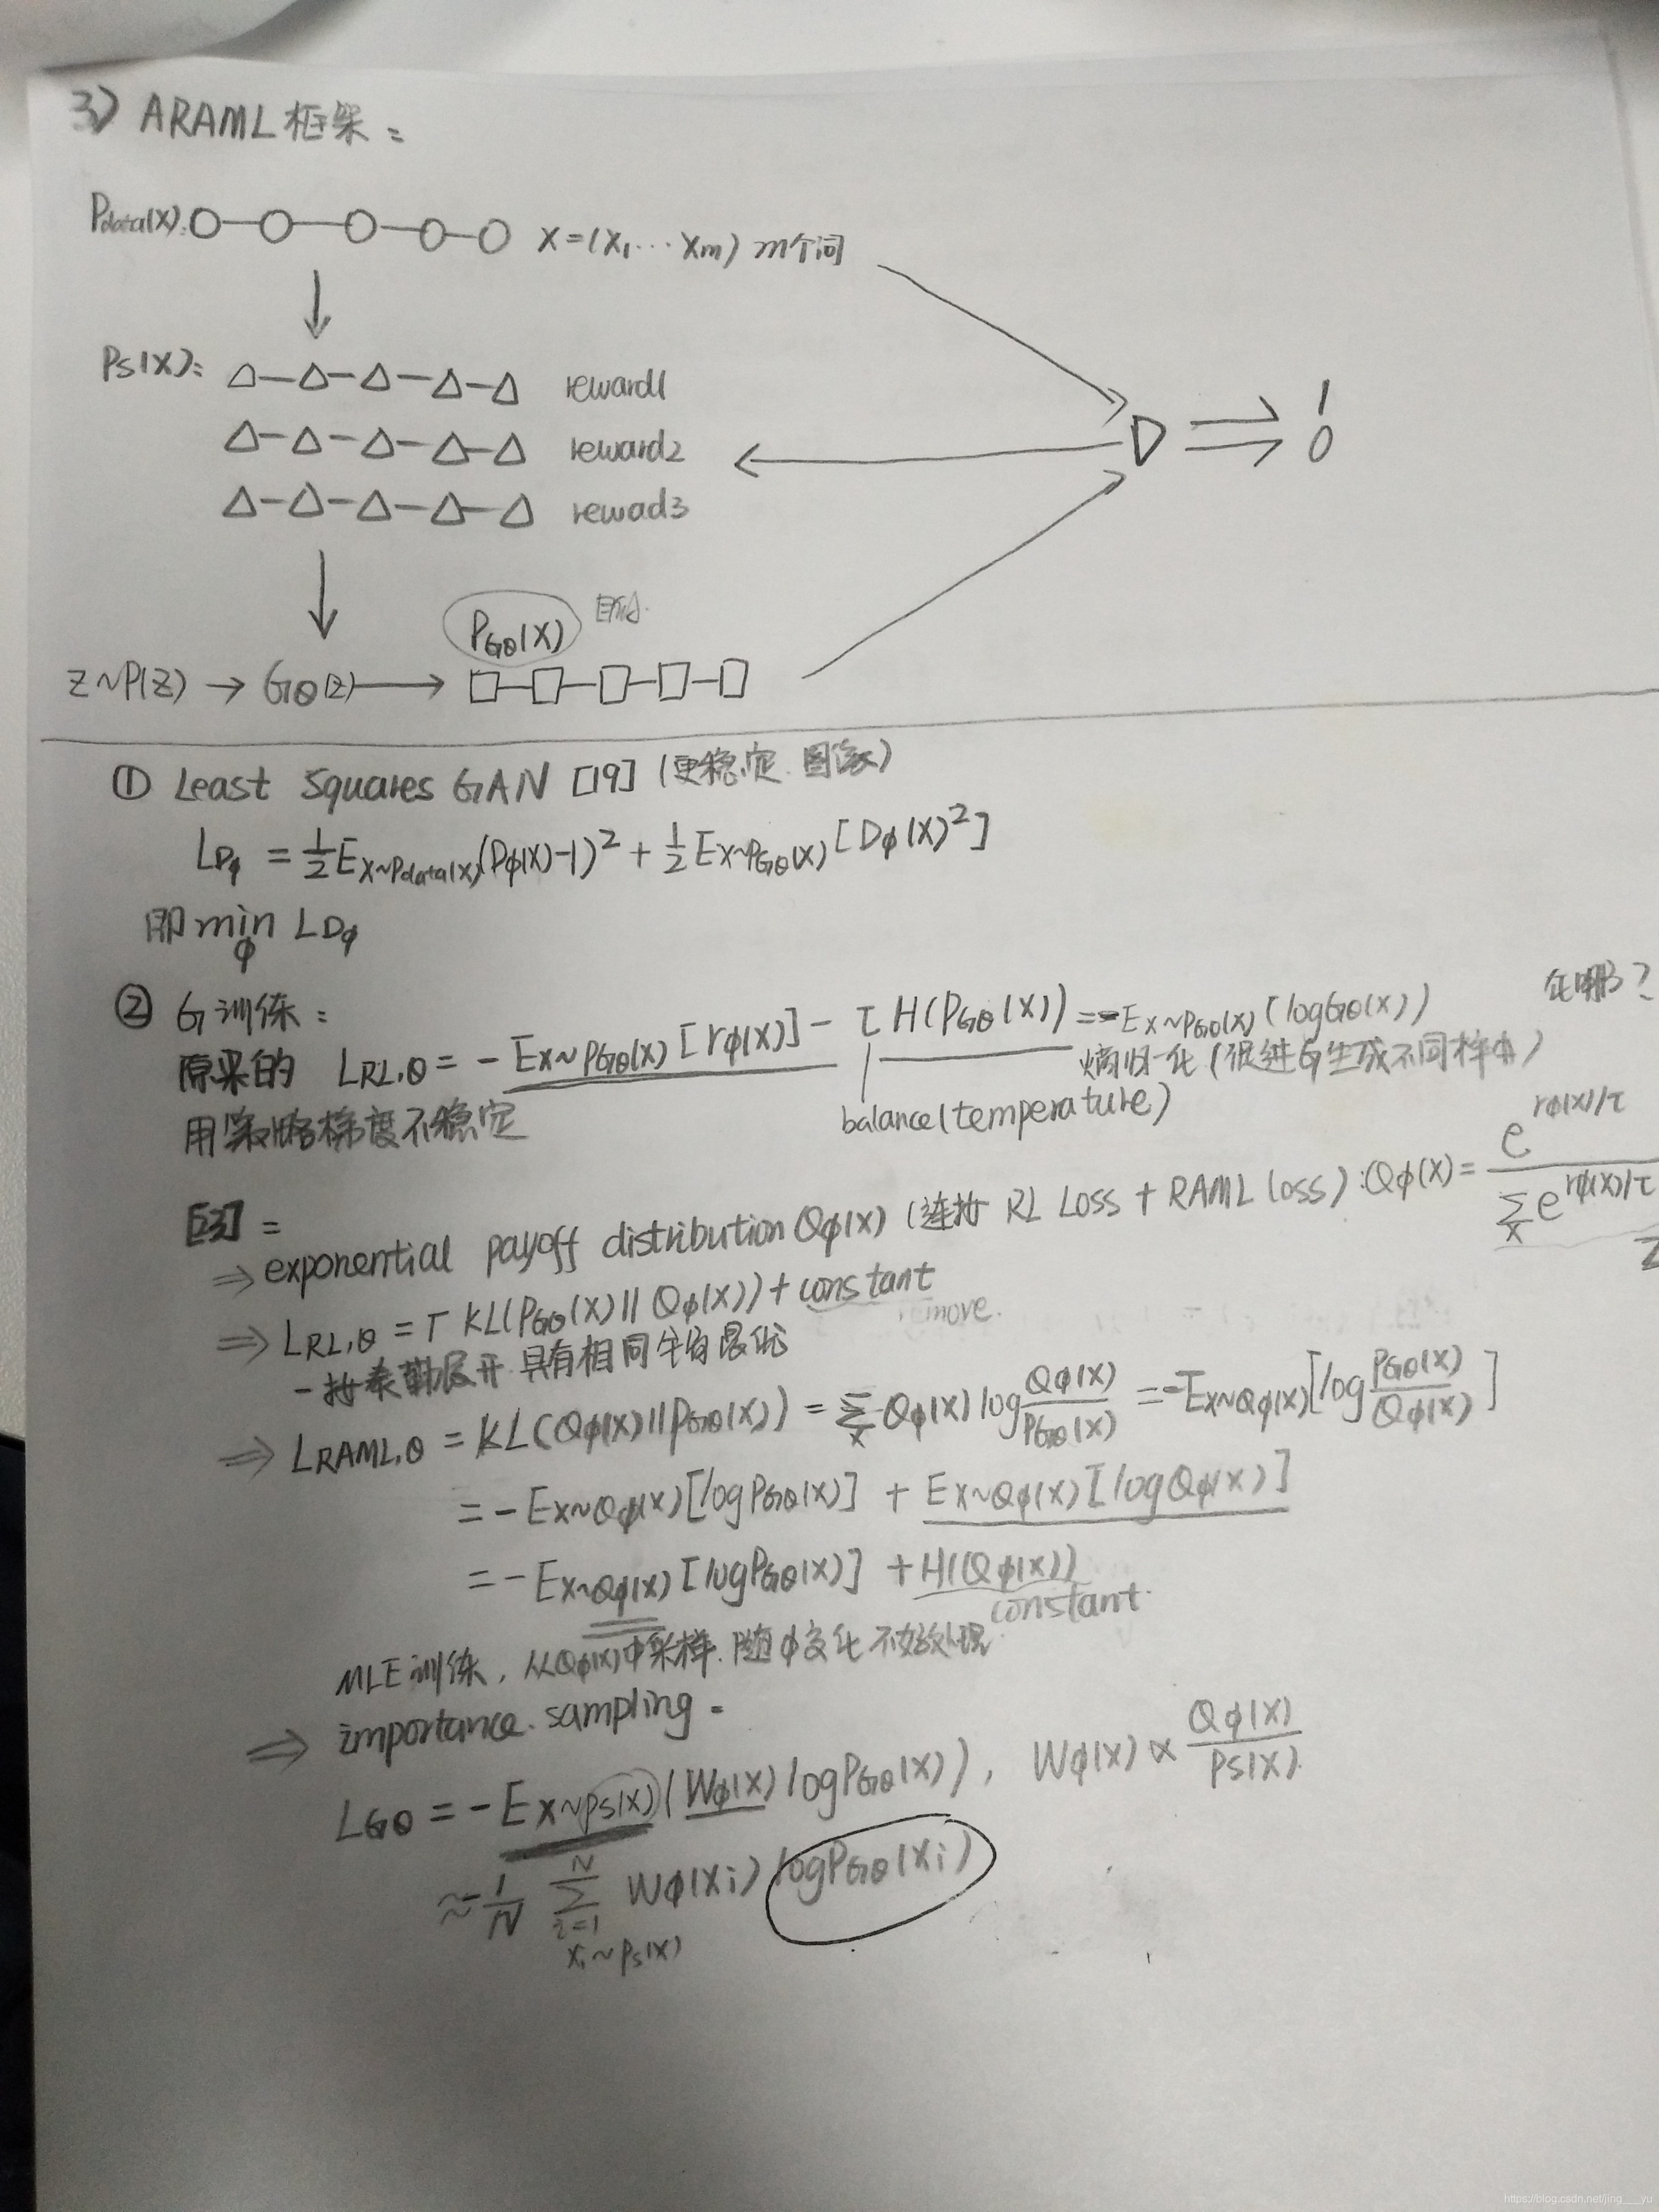 3) ARAML框架:
Pdata(x): X=(X1...Xm) m个词
Ps(X): reward1
reward2
rewad3
D 1
0
PGθ(X) 目标
Z~P(Z) → Gθ(Z) →
① Least Squares GAN [19] (更稳定.图像)
LDφ = 1/2 E X~Pdata(x) (Dφ(X)-1)² + 1/2 E X~PGθ(X) [Dφ(X)²]
即 min φ LDφ
② G训练:
原来的 LRL,θ = - E X~PGθ(X) [rφ(X)] - τ H(PGθ(X)) = - E X~PGθ(X) (logGθ(X)) 在哪?
熵归一化 (促进G生成不同样本)
用策略梯度不稳定
balance(temperature)
[23]:
⇒ exponential payoff distribution Qφ(X) (连接 RL Loss + RAML loss): Qφ(X) = e^{rφ(X)/τ} / Σ_X e^{rφ(X)/τ} Z
⇒ LRL,θ = τ KL(PGθ(X)||Qφ(X)) + constant
move.
一按泰勒展开 具有相同全局最优
⇒ LRAML,θ = KL(Qφ(X)||PGθ(X)) = Σ_X Qφ(X) log Qφ(X)/PGθ(X) = - E X~Qφ(X) [log PGθ(X)/Qφ(X)]
= - E X~Qφ(X) [logPGθ(X)] + E X~Qφ(X) [logQφ(X)]
= - E X~Qφ(X) [logPGθ(X)] + H(Qφ(X))
constant.
MLE训练, 从Qφ(X)中采样.随φ变化 不好处理
⇒ importance sampling:
LGθ = - E X~Ps(X) (Wφ(X) logPGθ(X)), Wφ(X) ∝ Qφ(X)/Ps(X)
≈ - 1/N Σ_{i=1}^{N} Wφ(Xi) logPGθ(Xi)
Xi~Ps(X)
https://blog.csdn.net/jing___yu